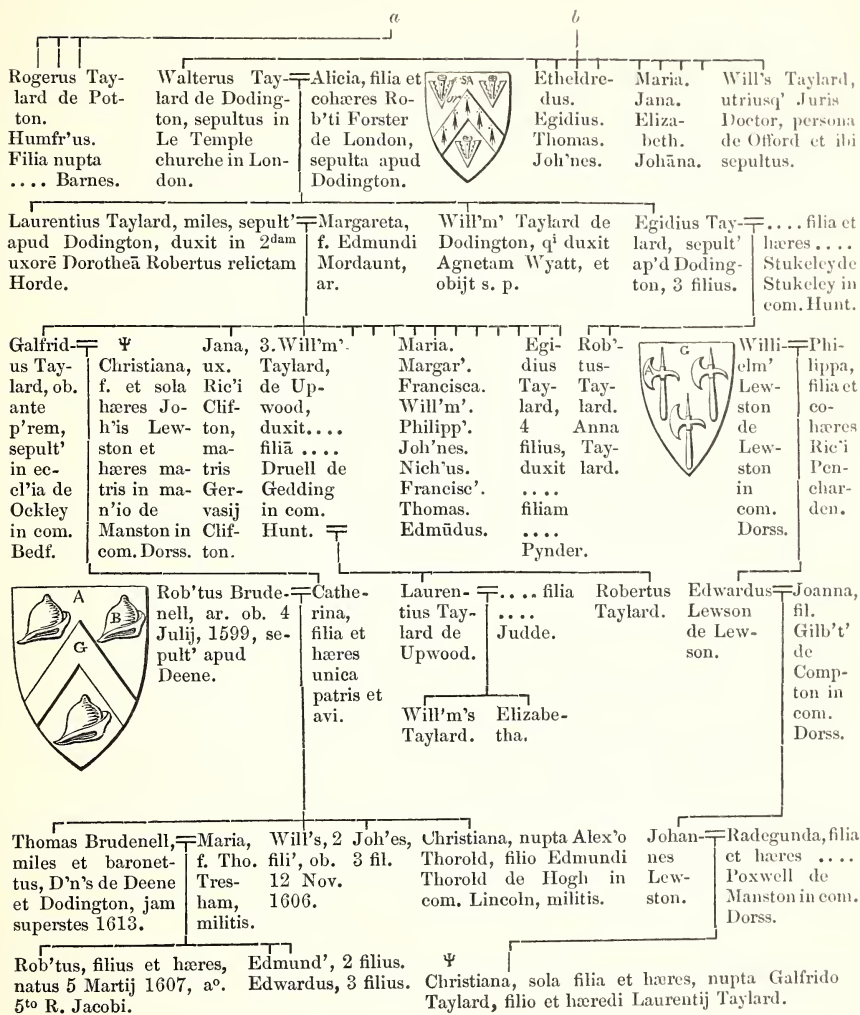 a
b
Rogerus Tay-
lard de Pot-
ton.
Humfr'us.
Filia nupta
.... Barnes.
Walterus Tay-
lard de Doding-
ton, sepultus in
Le Temple
churche in Lon-
don.
Alicia, filia et
cohæres Ro-
b'ti Forster
de London,
sepulta apud
Dodington.
SA
Etheldre-
dus.
Egidius.
Thomas.
Joh'nes.
Maria.
Jana.
Eliza-
beth.
Johāna.
Will's Taylard,
utriusq' Juris
Doctor, persona
de Offord et ibi
sepultus.
Laurentius Taylard, miles, sepult'
apud Dodington, duxit in 2dam
uxorē Dorotheā Robertus relictam
Horde.
Margareta,
f. Edmundi
Mordaunt,
ar.
Will'm' Taylard de
Dodington, qi duxit
Agnetam Wyatt, et
obijt s. p.
Egidius Tay-
lard, sepult'
ap'd Doding-
ton, 3 filius.
.... filia et
hæres ....
Stukeley de
Stukeley in
com. Hunt.
Galfrid-
us Tay-
lard, ob.
ante
p'rem,
sepult'
in ec-
cl'ia de
Ockley
in com.
Bedf.
Ψ
Christiana,
f. et sola
hæres Jo-
h'is Lew-
ston et
hæres ma-
tris in ma-
n'io de
Manston in
com. Dorss.
Jana,
ux.
Ric'i
Clif-
ton,
ma-
tris
Ger-
vasij
Clif-
ton.
3. Will'm'
Taylard,
de Up-
wood,
duxit....
filiā ....
Druell de
Gedding
in com.
Hunt.
Maria.
Margar'.
Francisca.
Will'm'.
Philipp'.
Joh'nes.
Nich'us.
Francisc'.
Thomas.
Edmūdus.
Egi-
dius
Tay-
lard,
4
filius,
duxit
....
filiam
....
Pynder.
Rob'-
tus-
Tay-
lard.
Anna
Tay-
lard.
A
G
Willi-
elm'
Lew-
ston
de
Lew-
ston
in
com.
Dorss.
Phi-
lippa,
filia et
co-
hæres
Ric'i
Pen-
char-
den.
A
B
G
Rob'tus Brude-
nell, ar. ob. 4
Julij, 1599, se-
pult' apud
Deene.
Cathe-
rina,
filia et
hæres
unica
patris et
avi.
Lauren-
tius Tay-
lard de
Upwood.
.... filia
....
Judde.
Robertus
Taylard.
Edwardus
Lewson
de Lew-
son.
Joanna,
fil.
Gilb't'
de
Comp-
ton in
com.
Dorss.
Will'm's
Taylard.
Elizabe-
tha.
Thomas Brudenell,
miles et baronet-
tus, D'n's de Deene
et Dodington, jam
superstes 1613.
Maria,
f. Tho.
Tres-
ham,
militis.
Will's, 2
fili', ob.
12 Nov.
1606.
Joh'es,
3 fil.
Christiana, nupta Alex'o
Thorold, filio Edmundi
Thorold de Hogh in
com. Lincoln, militis.
Johan-
nes
Lew-
ston.
Radegunda, filia
et hæres ....
Poxwell de
Manston in com.
Dorss.
Rob'tus, filius et hæres,
natus 5 Martij 1607, ao.
5to R. Jacobi.
Edmund', 2 filius.
Edwardus, 3 filius.
Ψ
Christiana, sola filia et hæres, nupta Galfrido
Taylard, filio et hæredi Laurentij Taylard.